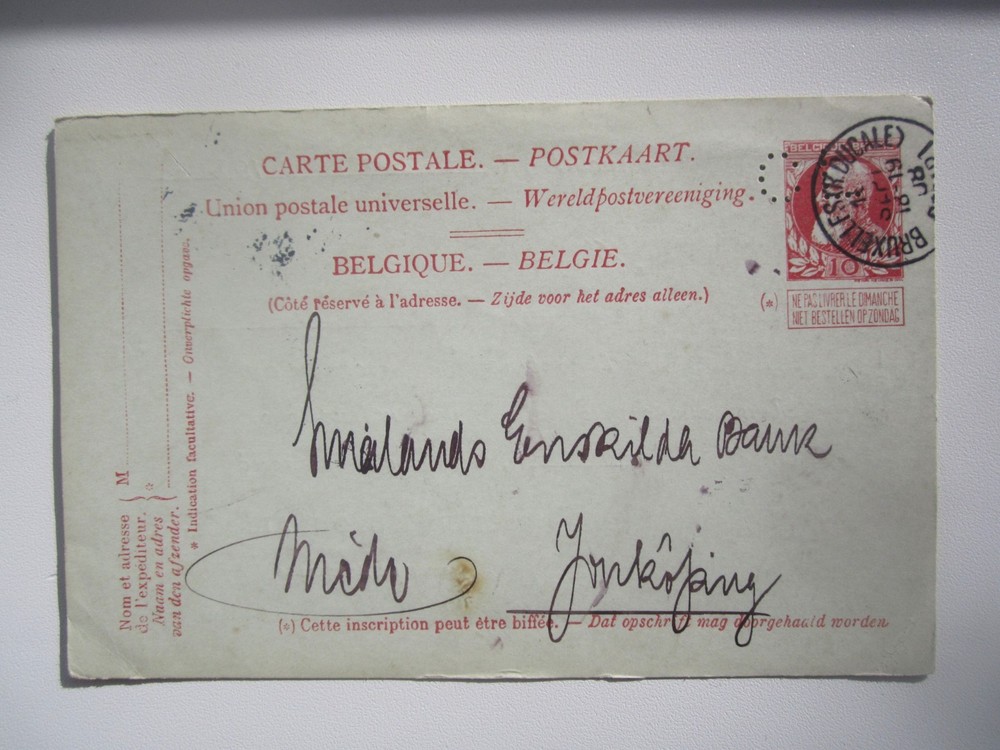 CARTE POSTALE. — POSTKAART.
Union postale universelle. — Wereldpostvereeniging.
BELGIQUE. — BELGIE.
(Côté réservé à l'adresse. — Zijde voor het adres alleen.)
10
(*) NE PAS LIVRER LE DIMANCHE
NIET BESTELLEN OP ZONDAG
BRUXELLES (R. DUCALE)
Smålands Enskilda Bank
Suède
Jonköping
(*) Cette inscription peut être biffée. — Dat opschrift mag doorgehaald worden
M
Nom et adresse
de l'expéditeur.
Naam en adres
van den afzender.
* Indication facultative. — Onverplichte opgaaf.